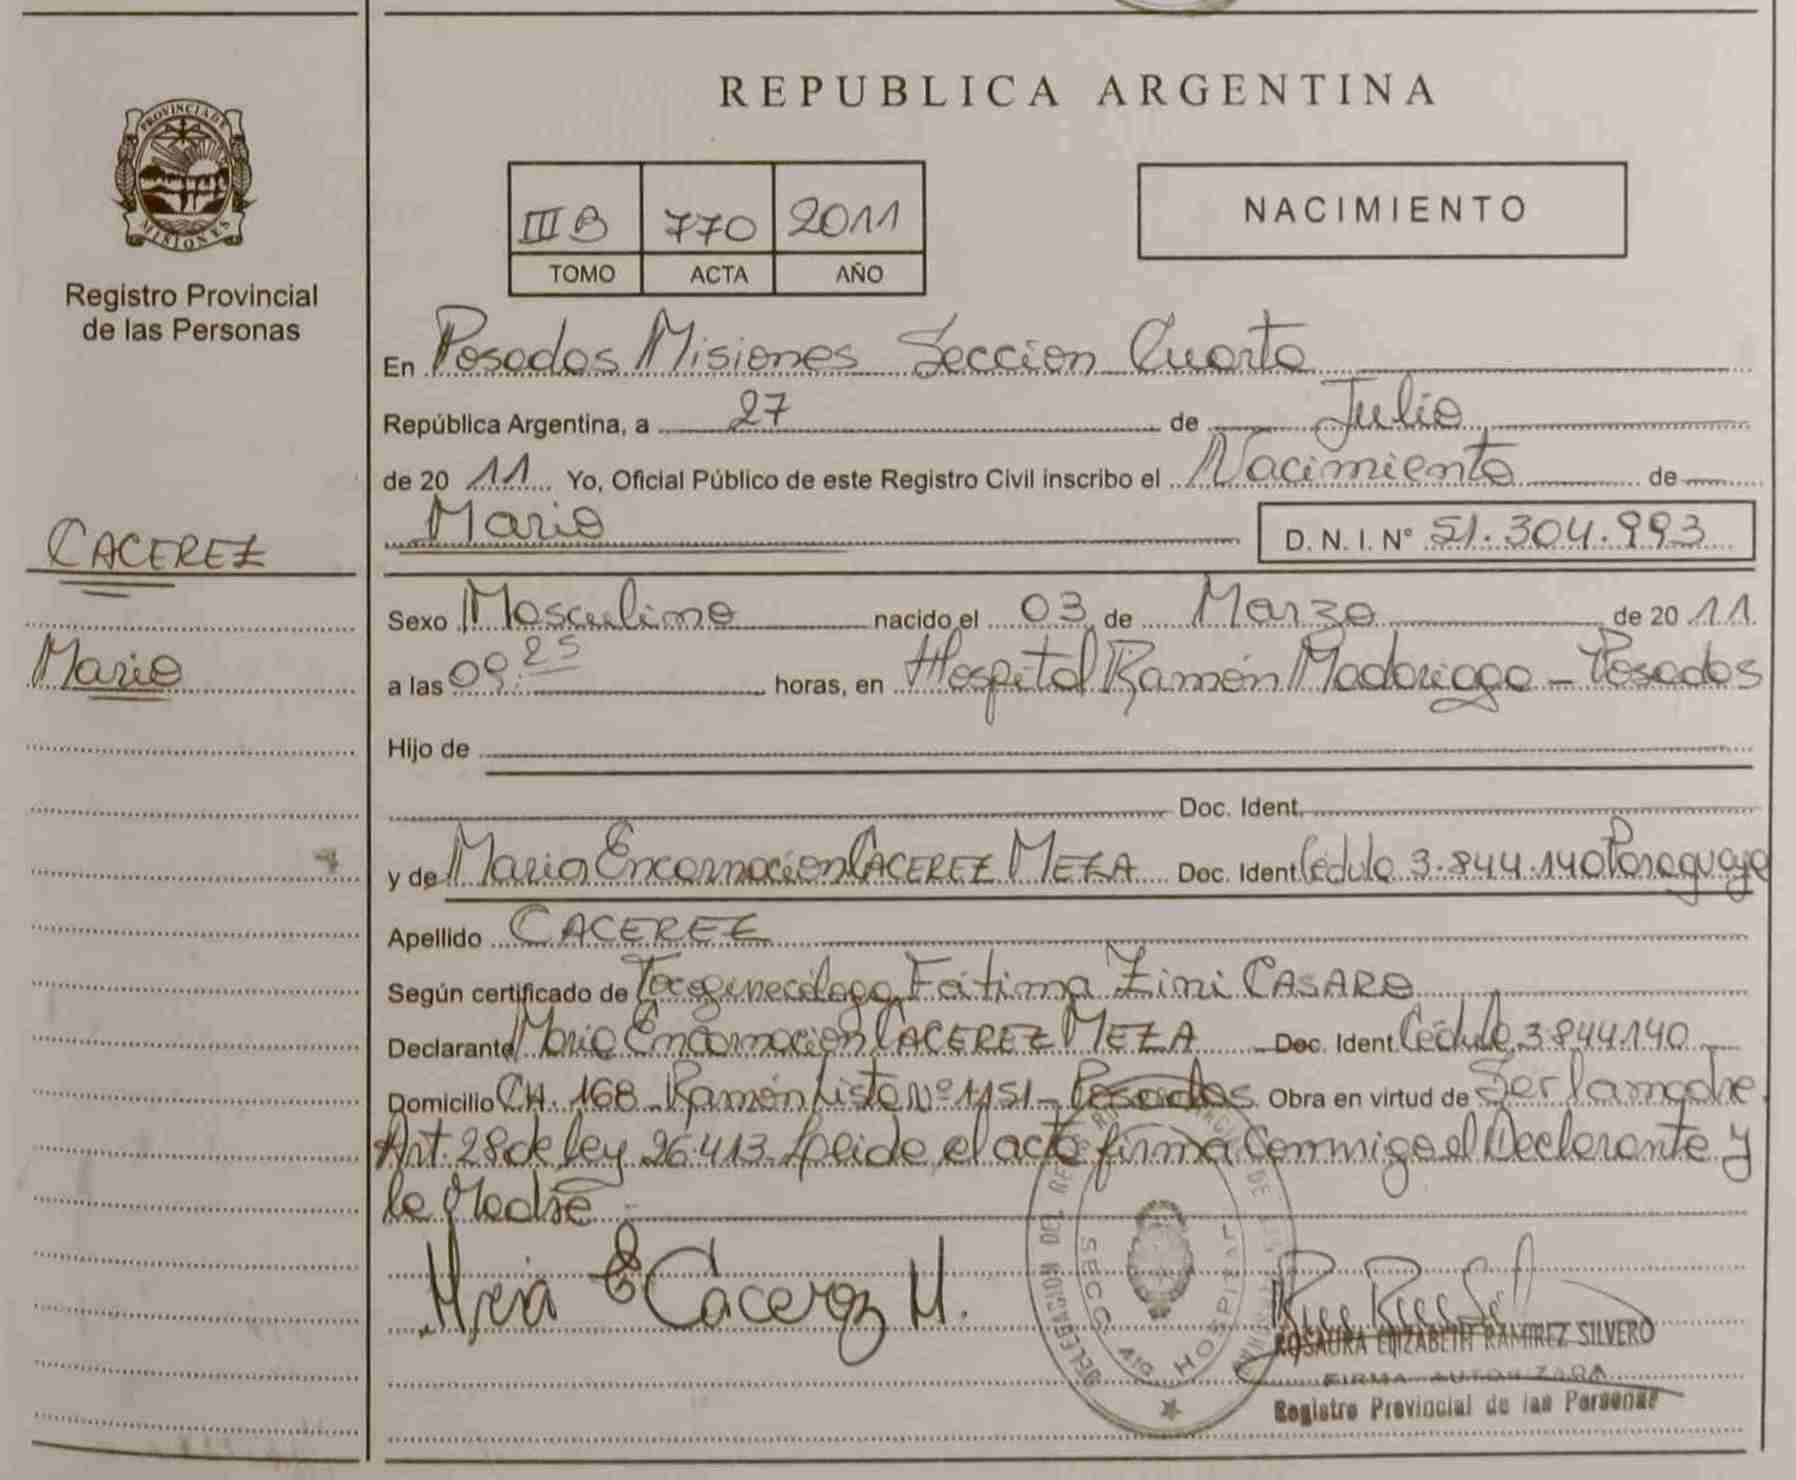 REPUBLICA ARGENTINA
PROVINCIA DE
MISIONES
Registro Provincial
de las Personas
III B 770 2011
TOMO ACTA AÑO
NACIMIENTO
En Posadas Misiones Seccion Cuarta
República Argentina, a 27 de Julio
de 20 11 Yo, Oficial Público de este Registro Civil inscribo el Nacimiento de
Mario
D. N. I. N° 51.304.993
CACEREZ
Mario
Sexo Masculino nacido el 03 de Marzo de 20 11
a las 09:25 horas, en Hospital Ramón Madariaga - Posadas
Hijo de
Doc. Ident.
y de Maria Encarnacion CACEREZ MEZA Doc. Ident Cédula 3.844.140 Paraguaya
Apellido CACEREZ
Según certificado de Tocoginecóloga Fátima Zini CASARO
Declarante Maria Encarnacion CACEREZ MEZA Doc. Ident. Cédula 3844140
Domicilio CH. 168 Ramón Lista Nº 1151 - Posadas Obra en virtud de Ser la madre.
Art. 28 de ley 26.413. Leida el acta firma Conmigo el Declarante y
la Madre
Mria E Cacerez M.
SECC. 4ta HOSPITAL
ROSAURA ELIZABETH RAMIREZ SILVERO
FIRMA AUTORIZADA
Registro Provincial de las Personas